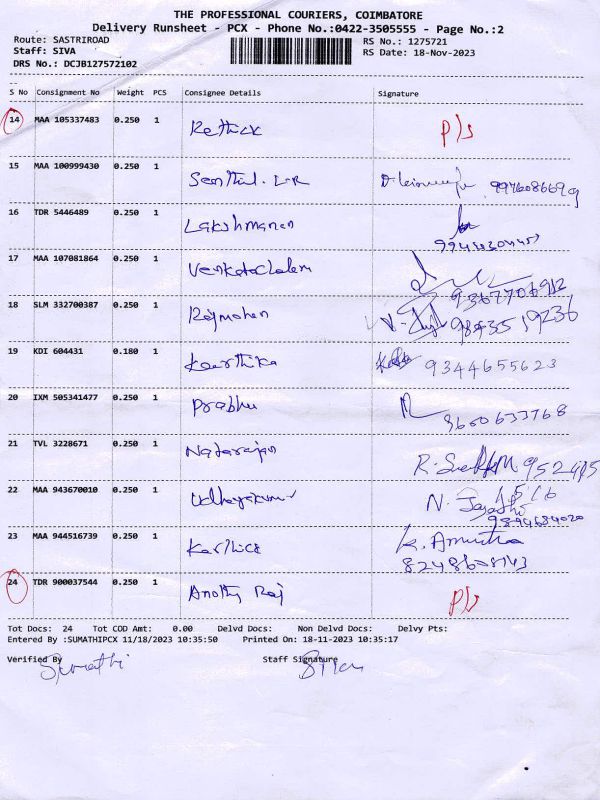 THE PROFESSIONAL COURIERS, COIMBATORE
Delivery Runsheet - PCX - Phone No.:0422-3505555 - Page No.:2
Route: SASTRIROAD RS No.: 1275721
Staff: SIVA RS Date: 18-Nov-2023
DRS No.: DCJB127572102
S No Consignment No Weight PCS Consignee Details Signature
14 MAA 105337483 0.250 1 Kethick P/s
15 MAA 100999430 0.250 1 Senthil. L-R
16 TDR 5446489 0.250 1 Lakshmanan
17 MAA 107081864 0.250 1 Venkatachalam 9367706912
18 SLM 332700387 0.250 1 Rajmohan
19 KDI 604431 0.180 1 Keerthika 9344655623
20 IXM 505341477 0.250 1 Prabhu 9600633768
21 TVL 3228671 0.250 1 Natarajan
22 MAA 943670010 0.250 1 Udhayakumar N. Jayathi
9894684020
23 MAA 944516739 0.250 1 Karthick K. Amutha
8248608143
24 TDR 900037544 0.250 1 Anothy Raj P/s
Tot Docs: 24 Tot COD Amt: 0.00 Delvd Docs: Non Delvd Docs: Delvy Pts:
Entered By :SUMATHIPCX 11/18/2023 10:35:50 Printed On: 18-11-2023 10:35:17
Verified By Sumathi Staff Signature